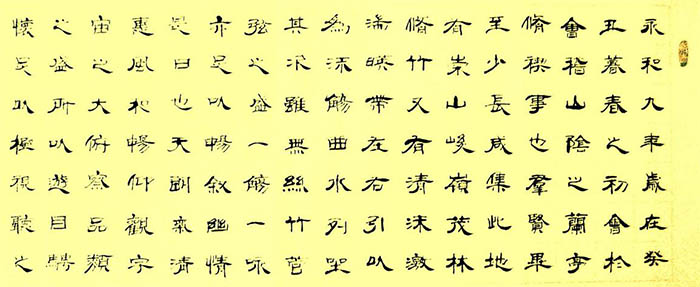 永和九年歲在癸
丑暮春之初會於
會稽山陰之蘭亭
脩禊事也羣賢畢
至少長咸集此地
有崇山峻嶺茂林
脩竹又有清流激
湍暎帶左右引以
為流觴曲水列坐
其次雖無絲竹管
弦之盛一觴一詠
亦足以暢敘幽情
是日也天朗氣清
惠風和暢仰觀宇
宙之大俯察品類
之盛所以遊目騁
懷足以極視聽之